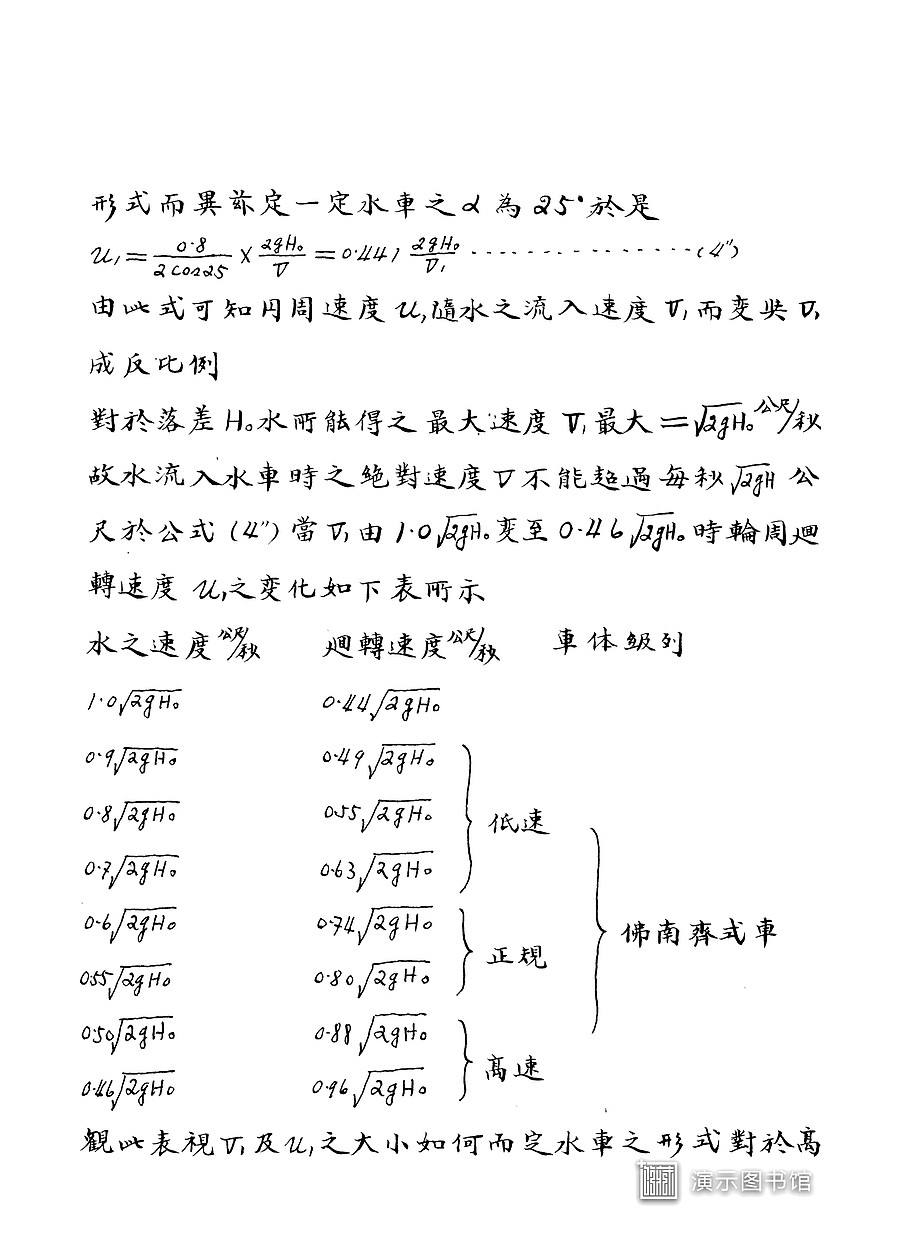 形式而異茲定一定水車之α為25°於是
u₁ = 0.8/(2cos25) × 2gH₀/V = 0.441 2gH₀/V₁ ················(4″)
由此式可知円周速度u₁隨水之流入速度V₁而变與V₁
成反比例
對於落差H₀水所能得之最大速度V₁最大=√2gH₀公尺/秒
故水流入水車時之絶對速度V不能超過每秒√2gH公
尺於公式(4″)當V₁由1.0√2gH₀变至0.46√2gH₀時輪周廻
轉速度u₁之变化如下表所示
水之速度公尺/秒 廻轉速度公尺/秒 車体級列
1.0√2gH₀ 0.44√2gH₀
0.9√2gH₀ 0.49√2gH₀
0.8√2gH₀ 0.55√2gH₀ 低速
0.7√2gH₀ 0.63√2gH₀
0.6√2gH₀ 0.74√2gH₀ 佛南齊式車
正規
0.55√2gH₀ 0.80√2gH₀
0.50√2gH₀ 0.88√2gH₀
高速
0.46√2gH₀ 0.96√2gH₀
觀此表視V₁及u₁之大小如何而定水車之形式對於高
演示图书馆